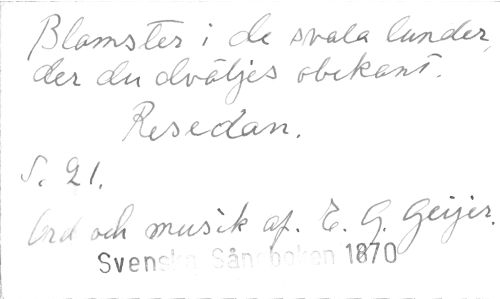 Blomster i de svala lunder,
der du dväljes obekant.
Resedan.
S. 21.
Ord och musik af. E. G. Geijer.
Svenska Sångboken 1870